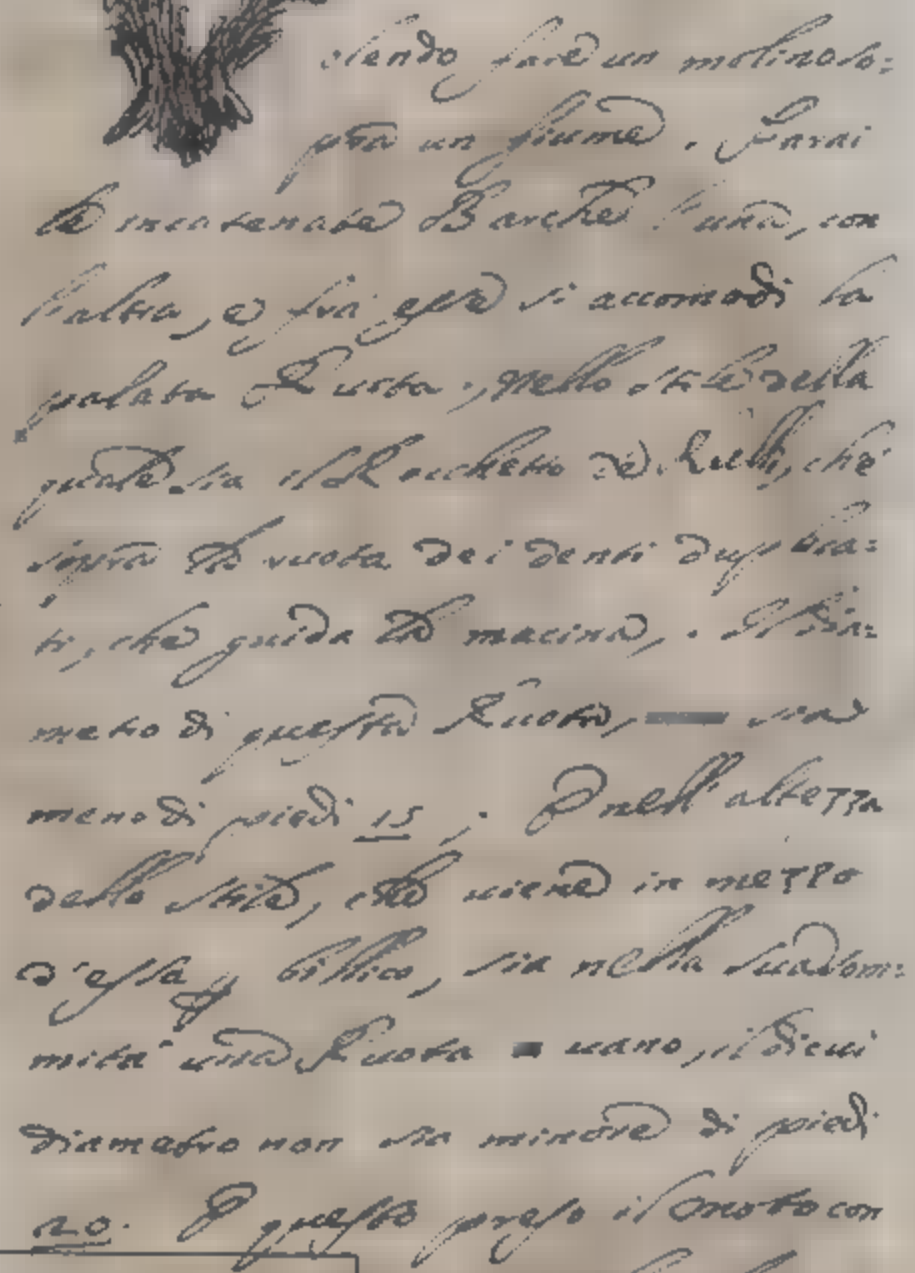 Volendo fare un molino so=
pra un fiume. Farai
le incatenate Barche l'una, con
l'altra, e fra esse si accomodi la
palata Ruota; nello stile della
quale sia il Rochetto de Rulli, che
sopra la ruota dei denti duplica=
ti, che guida la macina,. Il dia=
metro di questa Ruota, sia
meno di piedi 15; E nell'altezza
dello stile, che viene in mezzo
d'essa p billico, sia nella sua som=
mità una Ruota uano, il di cui
diametro non sia minore di piedi
20. E questo preso il moto con